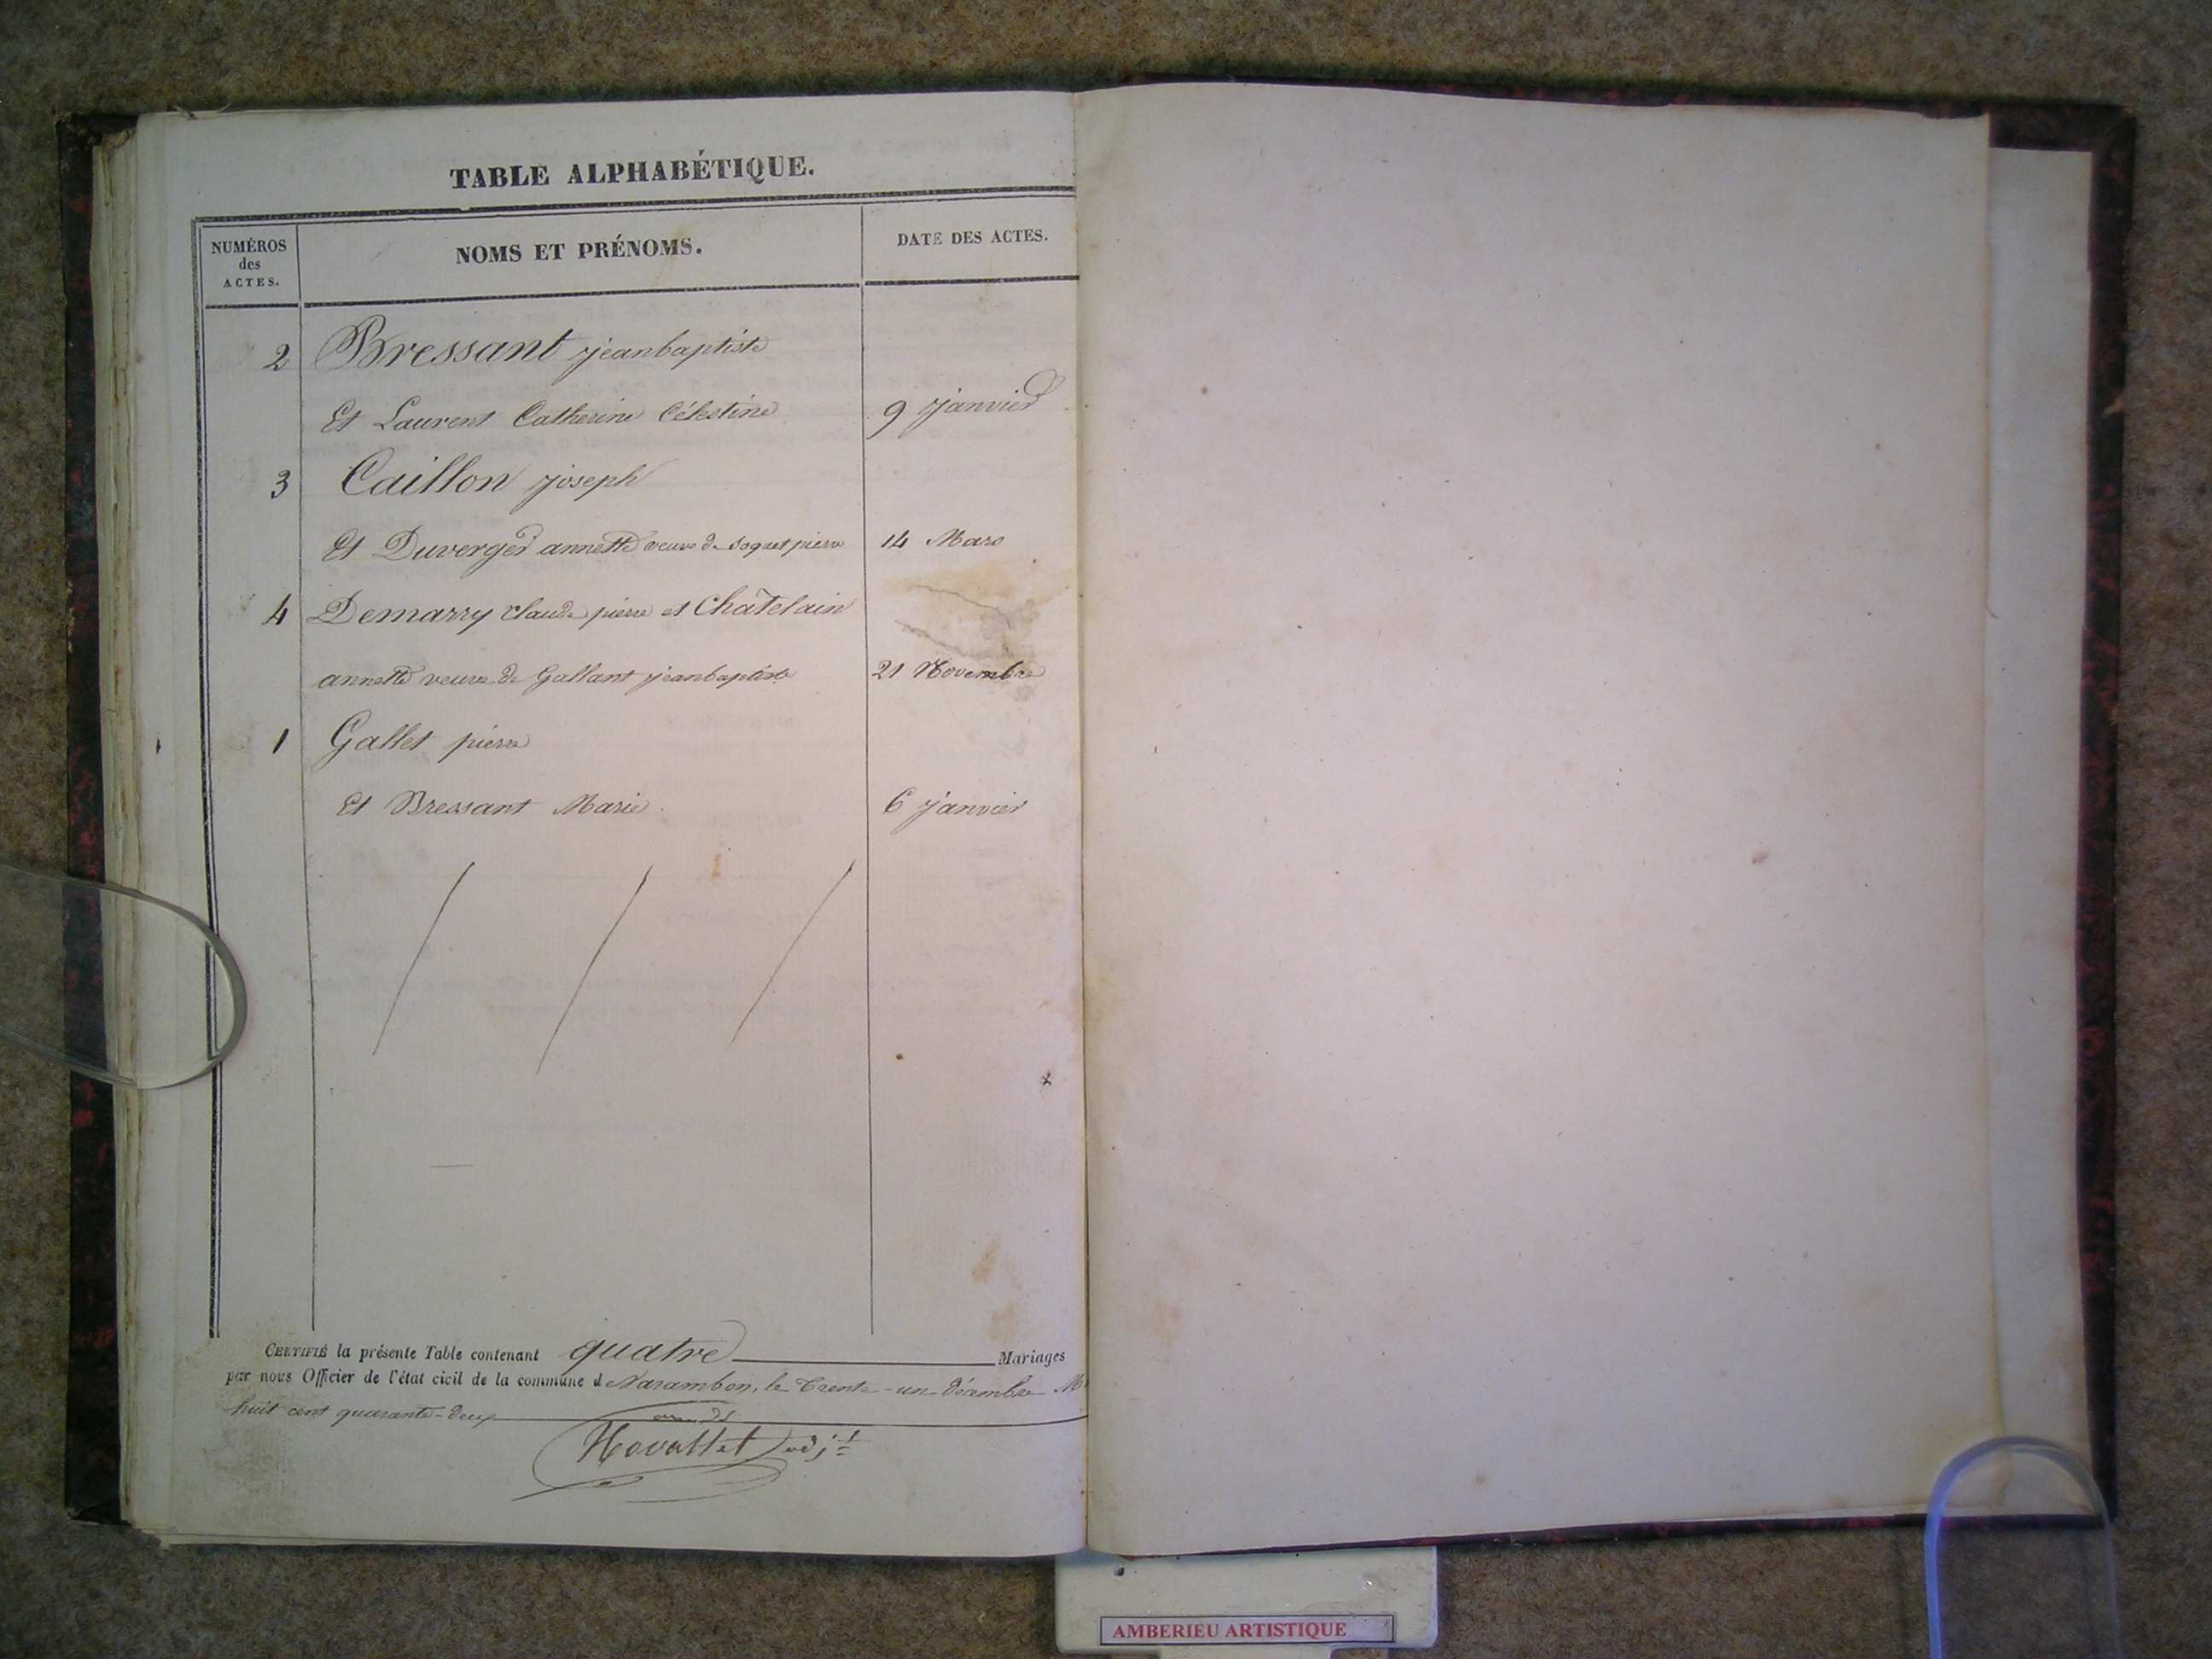 TABLE ALPHABÉTIQUE.
NUMÉROS
des
ACTES.
NOMS ET PRÉNOMS.
DATE DES ACTES.
2 Bressant jeanbaptiste
Et Laurent Catherine Célestine 9 janvier
3 Caillon joseph
Et Duverger annette veuve de Soquet pierre 14 Mars
4 Demarry claude pierre et Chatelain
annette veuve de Gallant jeanbaptiste 21 Novembre
1 Gallet pierre
Et Bressant Marie 6 janvier
CERTIFIÉ la présente Table contenant quatre Mariages
par nous Officier de l'état civil de la commune de Varambon, le trente-un décembre M
huit cent quarante-deux
adjt
AMBERIEU ARTISTIQUE